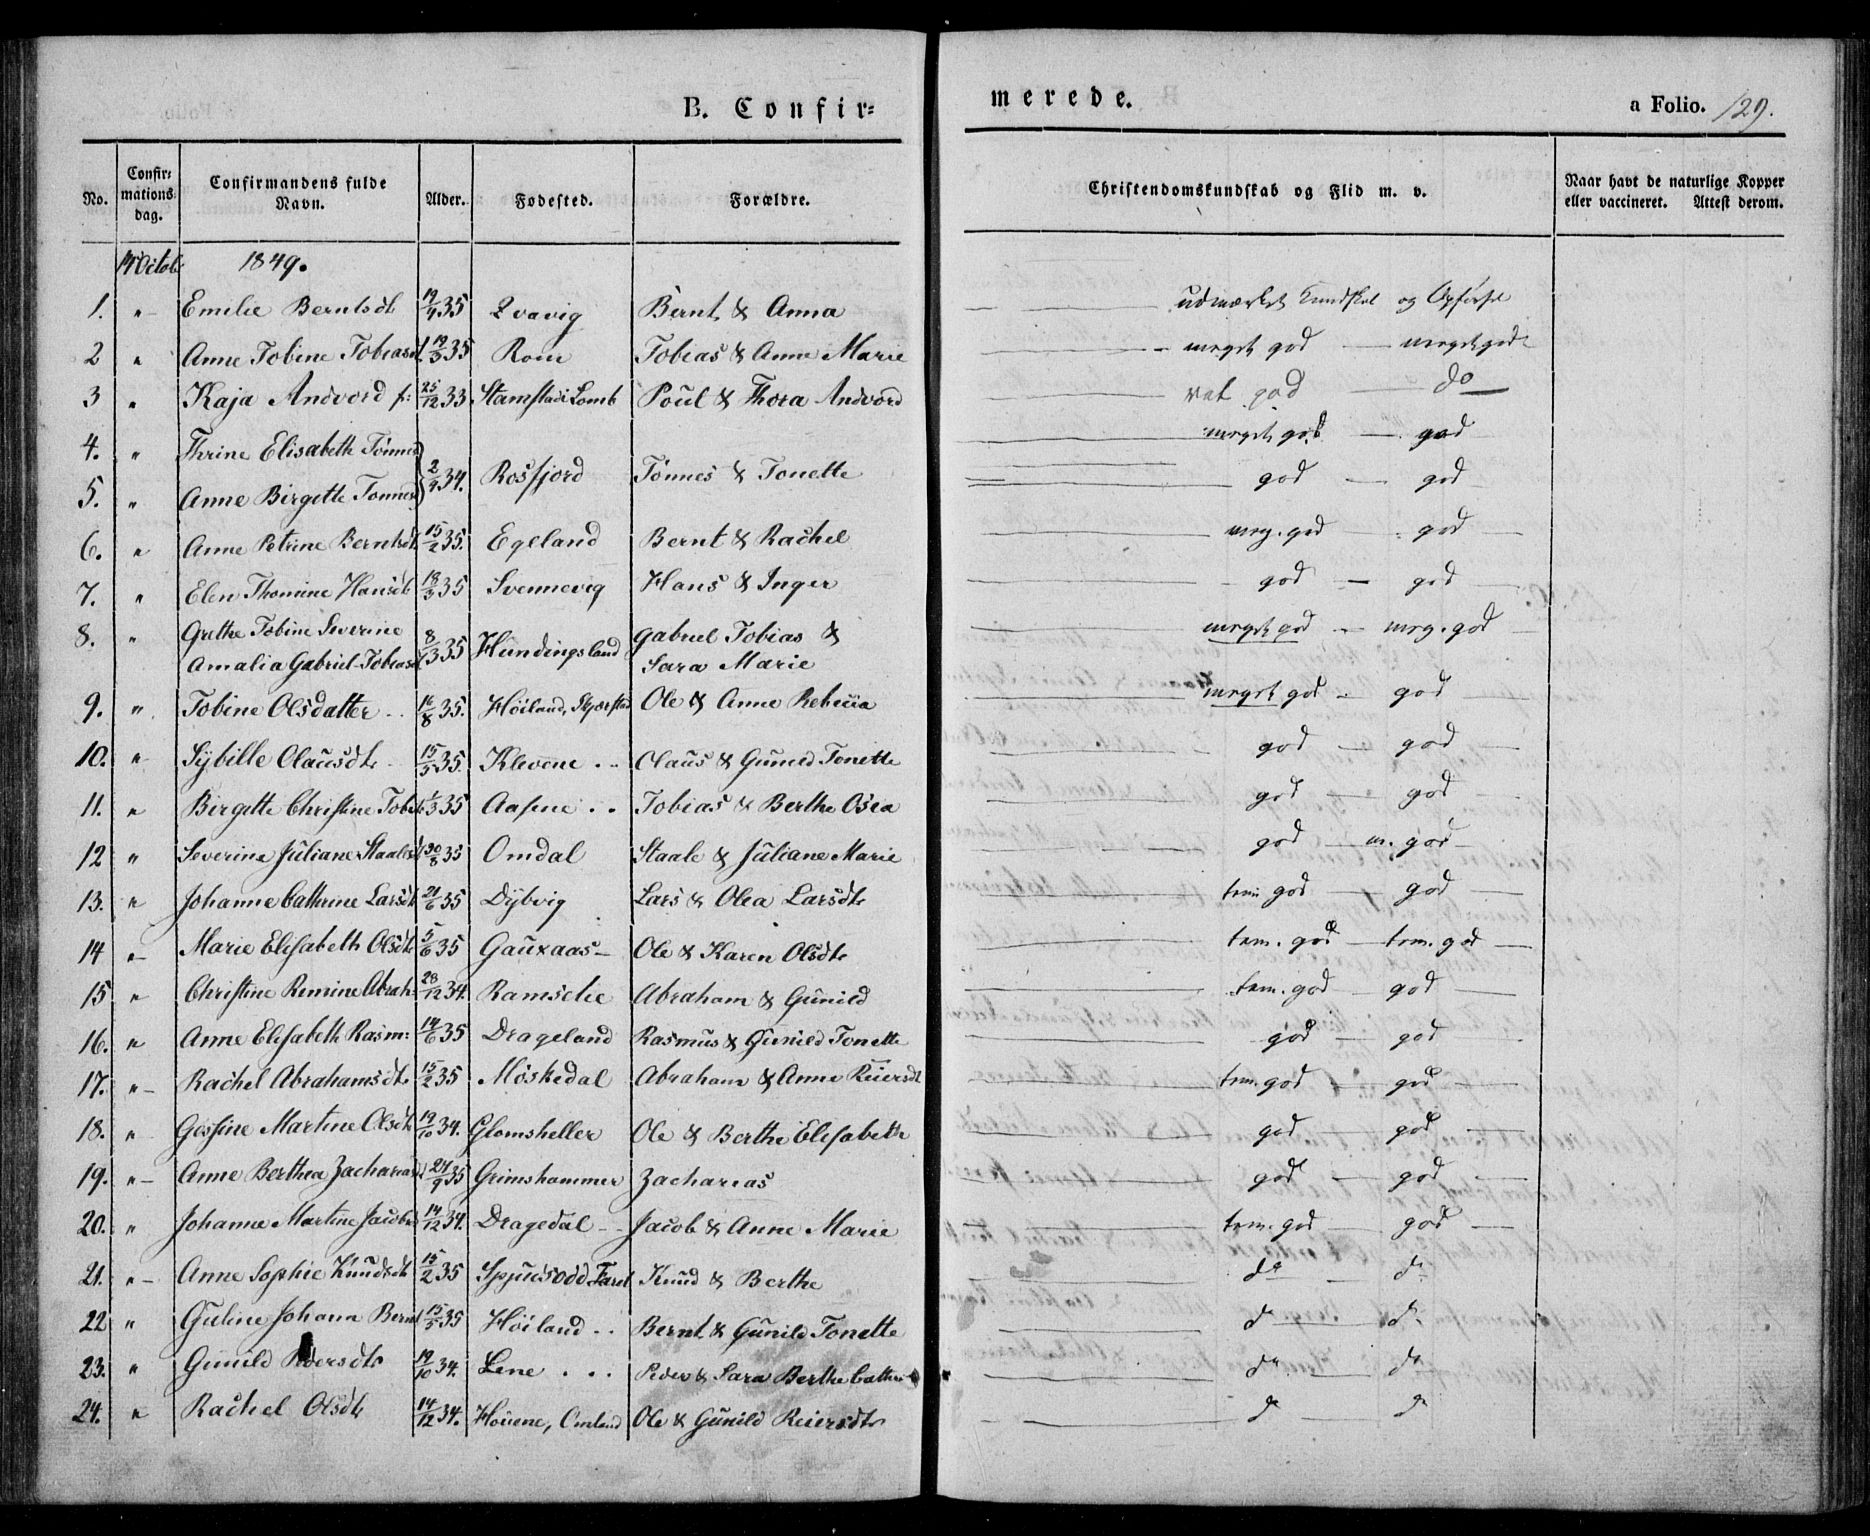 B. Confir=
merede.
a Folio. 129.
No.
Confir=
mations
dag.
Confirmandens fulde
Navn.
Alder.
Fødested.
Forældre.
Christendomskundskab og Flid m. v.
Naar havt de naturlige Kopper
eller vaccineret. Attest derom.
14 Octob. 1849.
1. " Emilie Berntsdt 19/4 35 Qvavig Bernt & Anna udmærket Kundskab og Opførsel
2 " Anne Tobine Tobiasd 19/3 35 Rom Tobias & Anne Marie meget god — meget god
3 " Kaja Andvord f: 25/12 33 Stamstad i Lomb Poul & Thora Andvord ret god do
4. " Thrine Elisabeth Tønnes meget god — god
5. " Anne Birgette Tønnes 2/9 34. Rosfjord Tönnes & Tonette god — god
6. " Anne Petrine Berntsdt. 15/2 35. Egeland Bernt & Rachel meg. god god
7. " Elen Thomine Hansdt 18/3 35 Svennevig Hans & Inger god — god
8. " Grethe Tobine Severine
Amalia Gabriel-Tobiasd 8/3 35 Hündingsland Gabriel Tobias &
Sara Marie meget god — meg. god
9. " Tobine Olsdatter 16/8 35. Höiland, Ole & Anne Rebecca meget god — god
10. " Sÿbille Olausdt. 15/5 35. Klevene Olaus & Gunild Tonette god — god
11. " Birgette Christine Tobidt 1/3 35 Aasene Tobias & Berthe Osea god — god
12 " Severine Juliane Staalesd 30/8 35 Omdal Staale & Juliane Marie god m. god
13. " Johanne Cathrine Larsdt 21/6 35 Dÿbvig Lars & Olea Larsdt. tem. god — god
14 " Marie Elisabeth Olsdt. 5/6 35 Gauxaas Ole & Karen Olsdt. tem. god — tem. god
15 " Christine Remine Abrah. 28/12 34. Ramslie Abraham & Gunild tem. god god
16. " Anne Elisabeth Rasm: 14/6 35 Drageland Rasmus & Gunild Tonette god — god
17. " Rachel Abrahamsdt. 15/2 35 Möskedal Abraham & Anne Reiersdt tem. god god
18. " Gessine Martine Olsdt. 19/10 34. Glomsheller Ole & Berthe Elisabeth god god
19. " Anne Berthea Zacharias 27/9 35 Grimshammer Zacharias god — god
20. " Johanne Martine Jacobs 14/12 34. Dragedal Jacob & Anne Marie tem. god — god
21. " Anne Sophie Knudsdt 15/2 35 Spjudsodd Farst Knud & Berthe do — do
22 " Guline Johanne Bernt 15/5 35 Höiland Bernt & Gunild Tonette do do
23. " Gunild Pedersdt. 19/10 34. Lene Peder & Sara Berthe Cathr do do
24. " Rachel Olsdt. 14/12 34. Houene, Omland Ole & Gunild Reiersdt. do — do